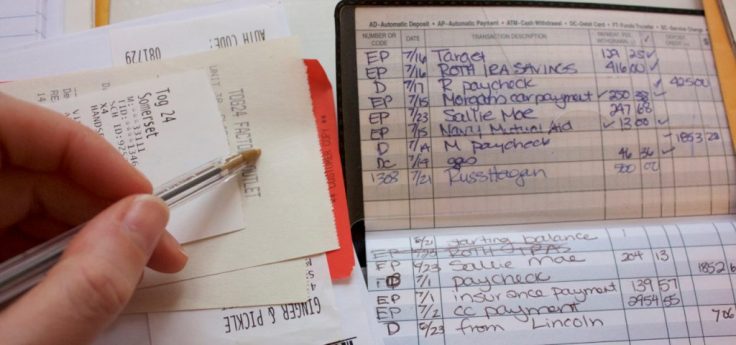 AUTH CODE:
081729
TOG24 FACTORY OUTLET
UNIT
Tog 24
Somerset
M:***33111
TID:****1345
SCH ID:925
X4
HANDSE
GINGER & PICKLE
AD-Automatic Deposit • AP-Automatic Payment • ATM-Cash Withdrawal • DC-Debit Card • FT-Funds Transfer • SC-Service Charge
NUMBER OR CODE DATE TRANSACTION DESCRIPTION PAYMENT, FEE, WITHDRAWAL (-) ✓ DEPOSIT, CREDIT (+) $
EP 7/16 Target 139 25 ✓
EP 7/16 ROTH IRA SAVINGS 416 00 ✓
D 7/17 R paycheck ✓ 425 00
EP 7/15 Morgan's car payment ✓ 250 ✓
EP 7/23 Sallie Moe 247 68
EP 7/15 Navy Mutual Aid ✓ 13 00 ✓
D 7/14 M paycheck ✓ 1853 22
DC 7/19 gas 46 36 ✓
1303 7/21 Russ Hagan 800 00
5/21 starting balance
EP 5/23 ROTH
EP 5/23 Sallie mae 204 13
D 7/1 paycheck 1852
EP 7/1 insurance payment 139 57
EP 7/2 cc payment 2954 55
D 6/23 from Lincoln 706